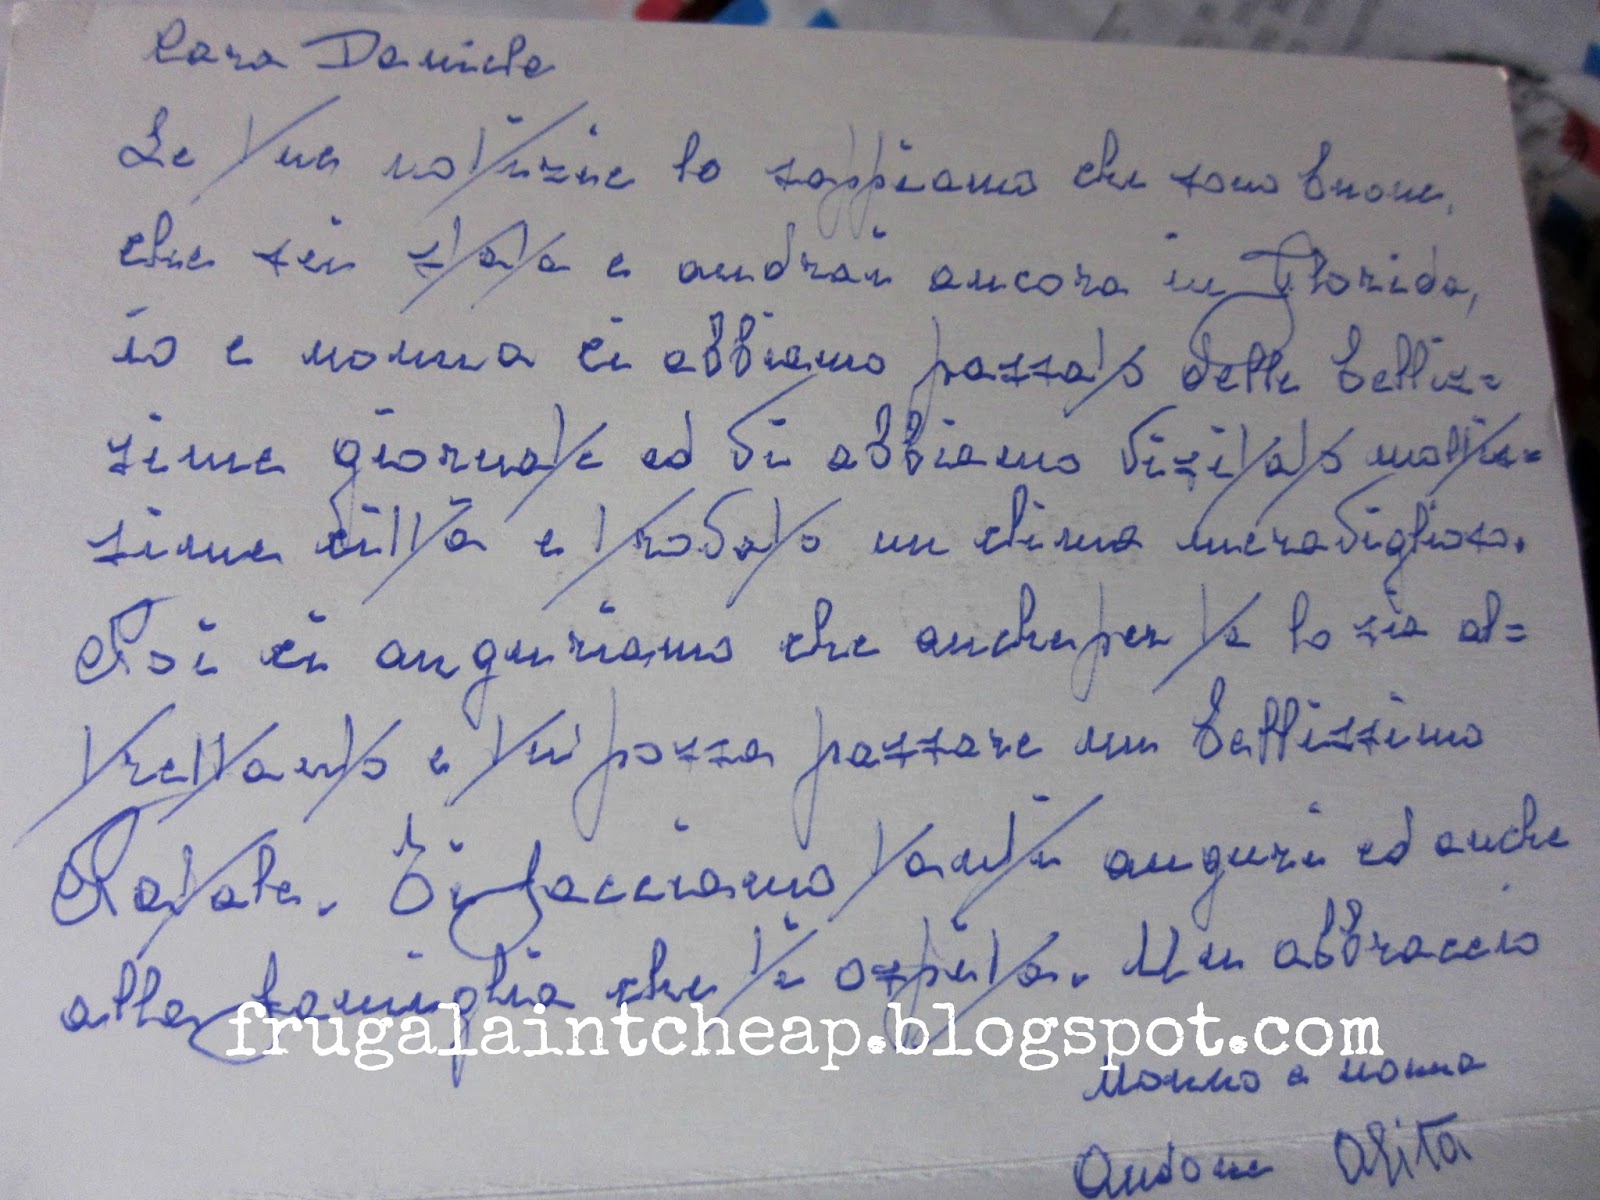 Cara Daniele
Le tue notizie lo sappiamo che sono buone,
che sei stata e andrai ancora in Florida,
io e nonna ci abbiamo passato delle bellis=
sime giornate ed vi abbiamo visitato moltis=
sime città e trovato un clima meraviglioso.
Poi ci auguriamo che anche per te lo sia al=
trettanto e tu possa passare un bellissimo
Natale. Ti facciamo tanti auguri ed anche
alla famiglia che ti ospita. Un abbraccio
frugalaintcheap.blogspot.com
nonno e nonna